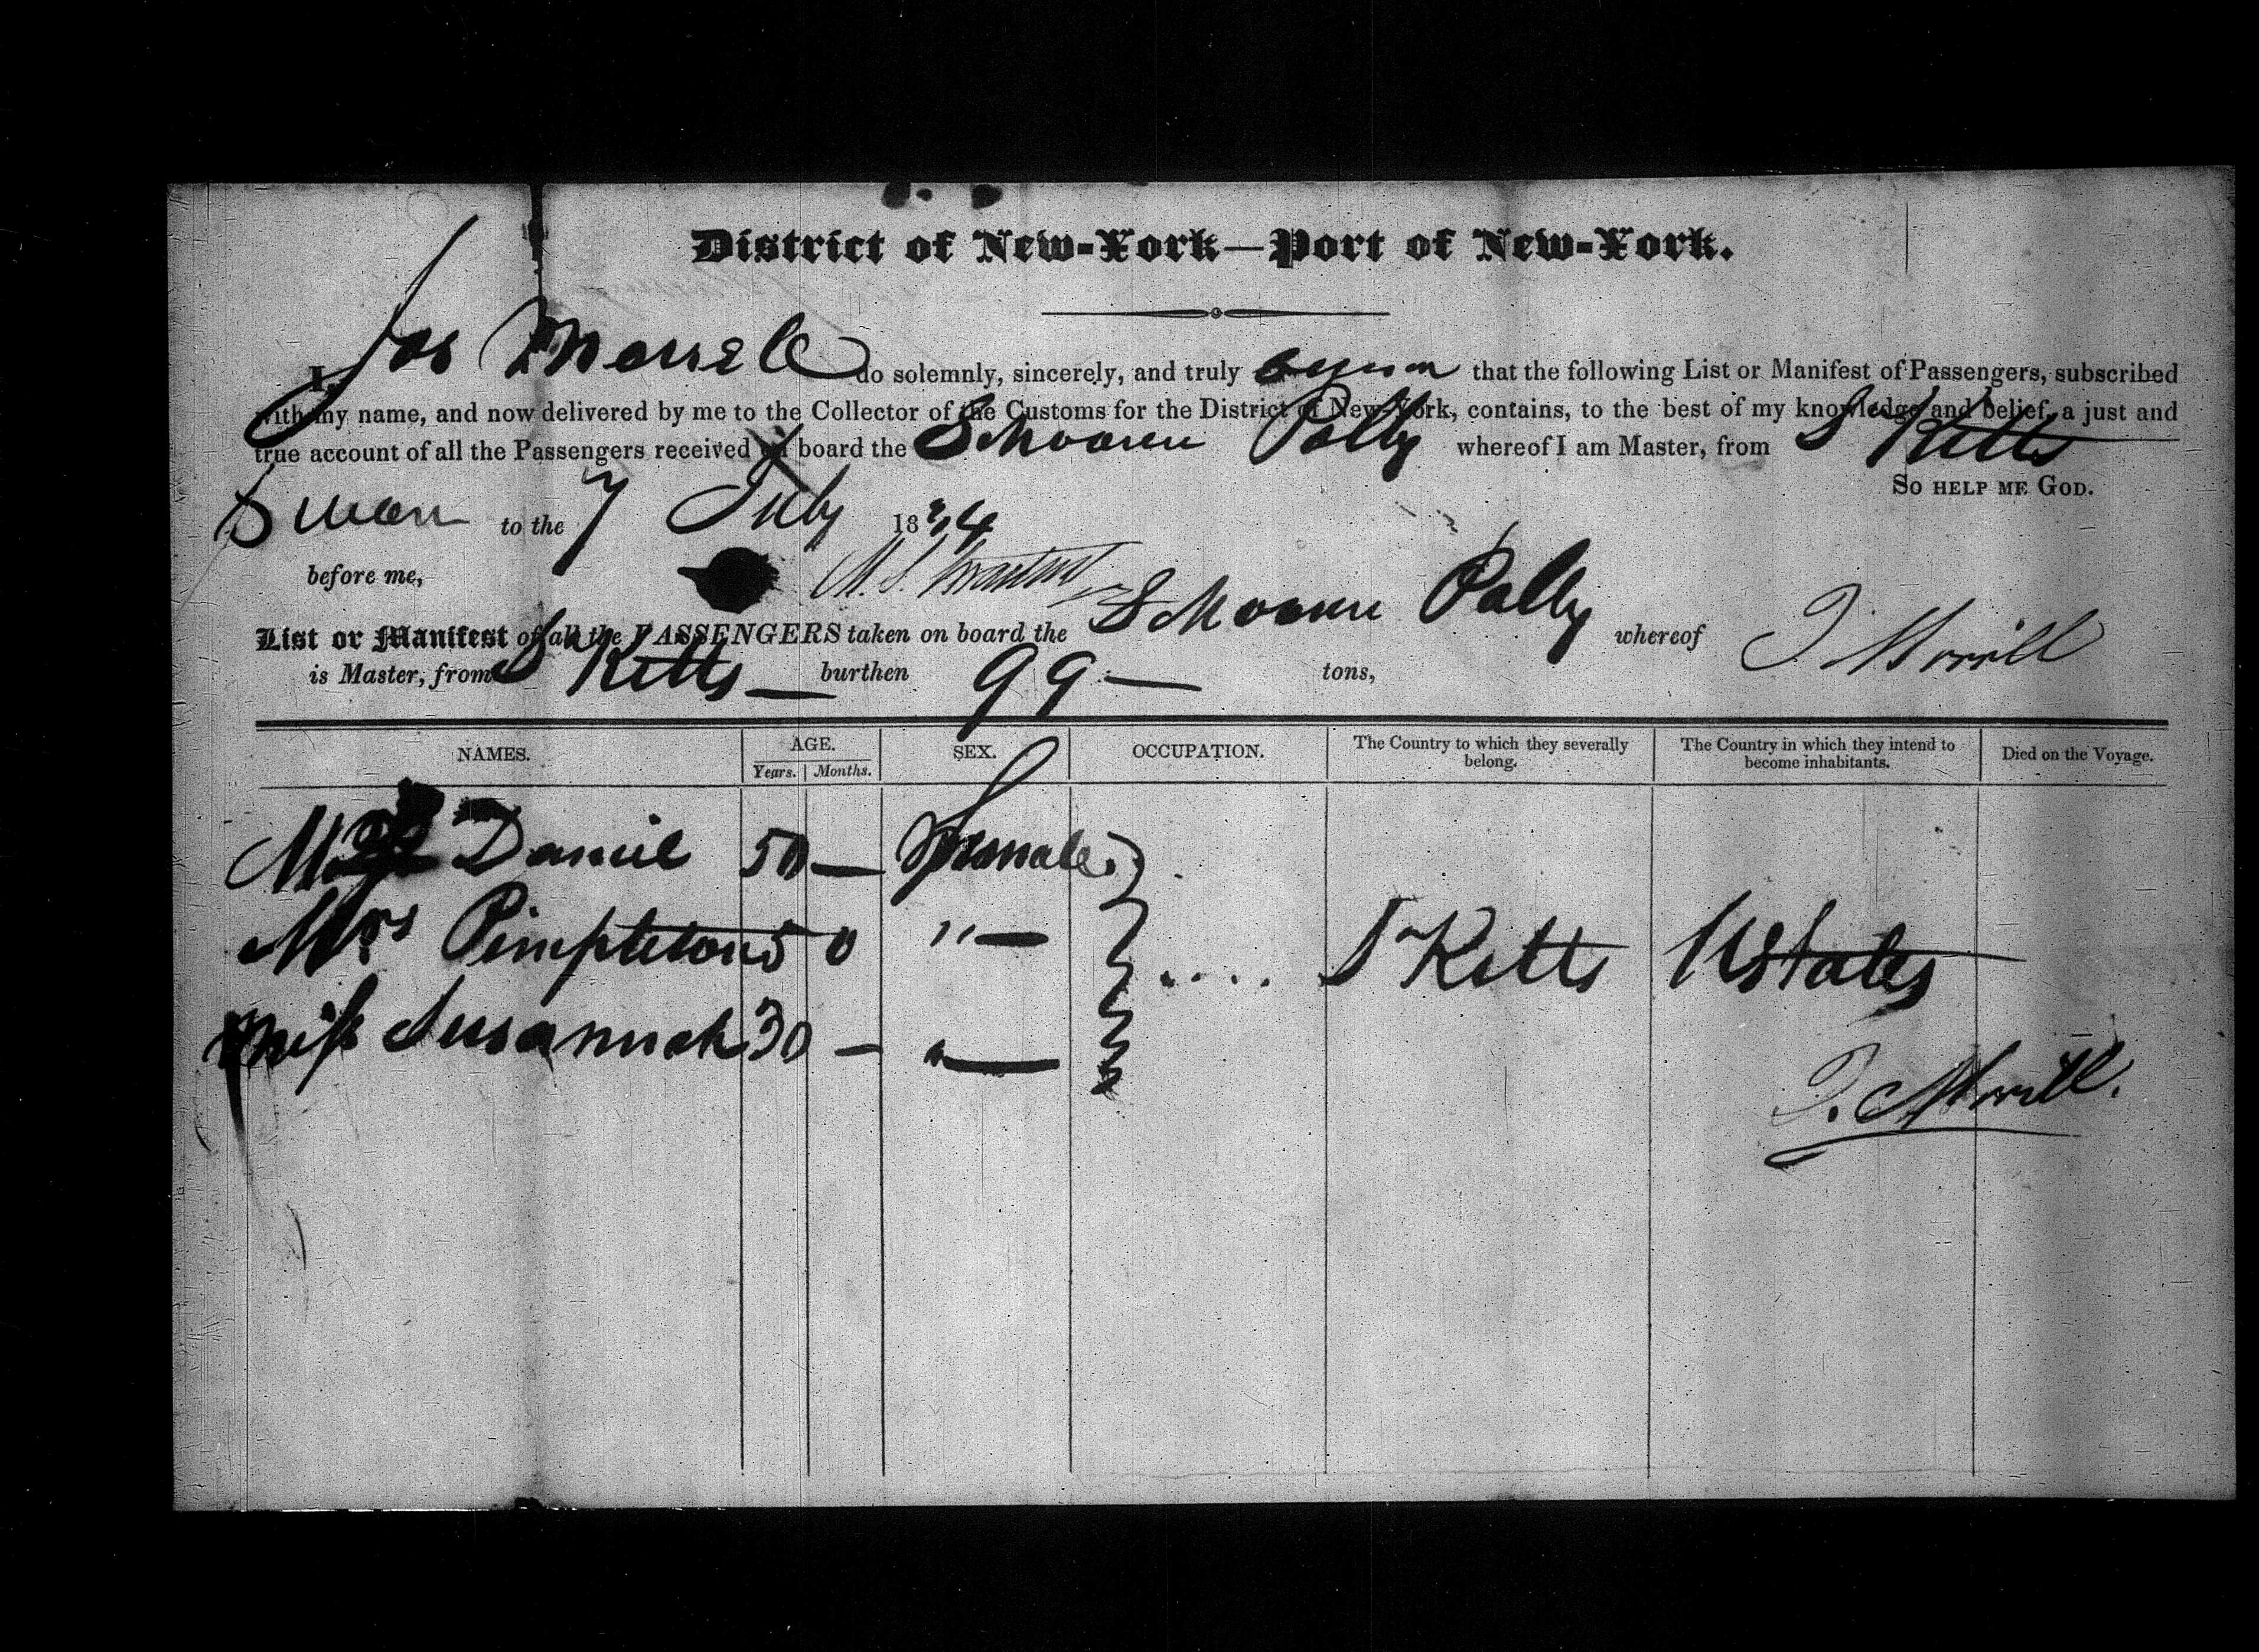 District of New-York—Port of New-York.
I, Jos Morrell do solemnly, sincerely, and truly that the following List or Manifest of Passengers, subscribed
with my name, and now delivered by me to the Collector of the Customs for the District of New-York, contains, to the best of my knowledge and belief, a just and
true account of all the Passengers received on board the Schooner Polly whereof I am Master, from St Kitts
So help me God.
Sworn to the 7 July 1834
before me,
List or Manifest of all the PASSENGERS taken on board the Schooner Polly whereof J. Morrill
is Master, from St Kitts burthen 99 — tons,
NAMES. AGE. SEX. OCCUPATION. The Country to which they severally belong. The Country in which they intend to become inhabitants. Died on the Voyage.
Years. Months.
Daniel 50 — Female
Mrs Pimpleton 50 "—
Miss Susannah 30 — "—
St Kitts UStates
J. Morrill.